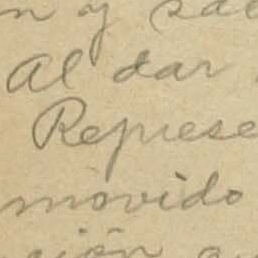 n y sac
Al dar
Represe
movido
ción